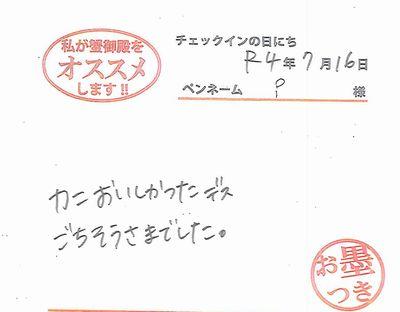 私が蟹御殿を
オススメ
します!!
チェックインの日にち
R4年7月16日
ペンネーム i 様
カニおいしかったデス
ごちそうさまでした。
お墨
つき